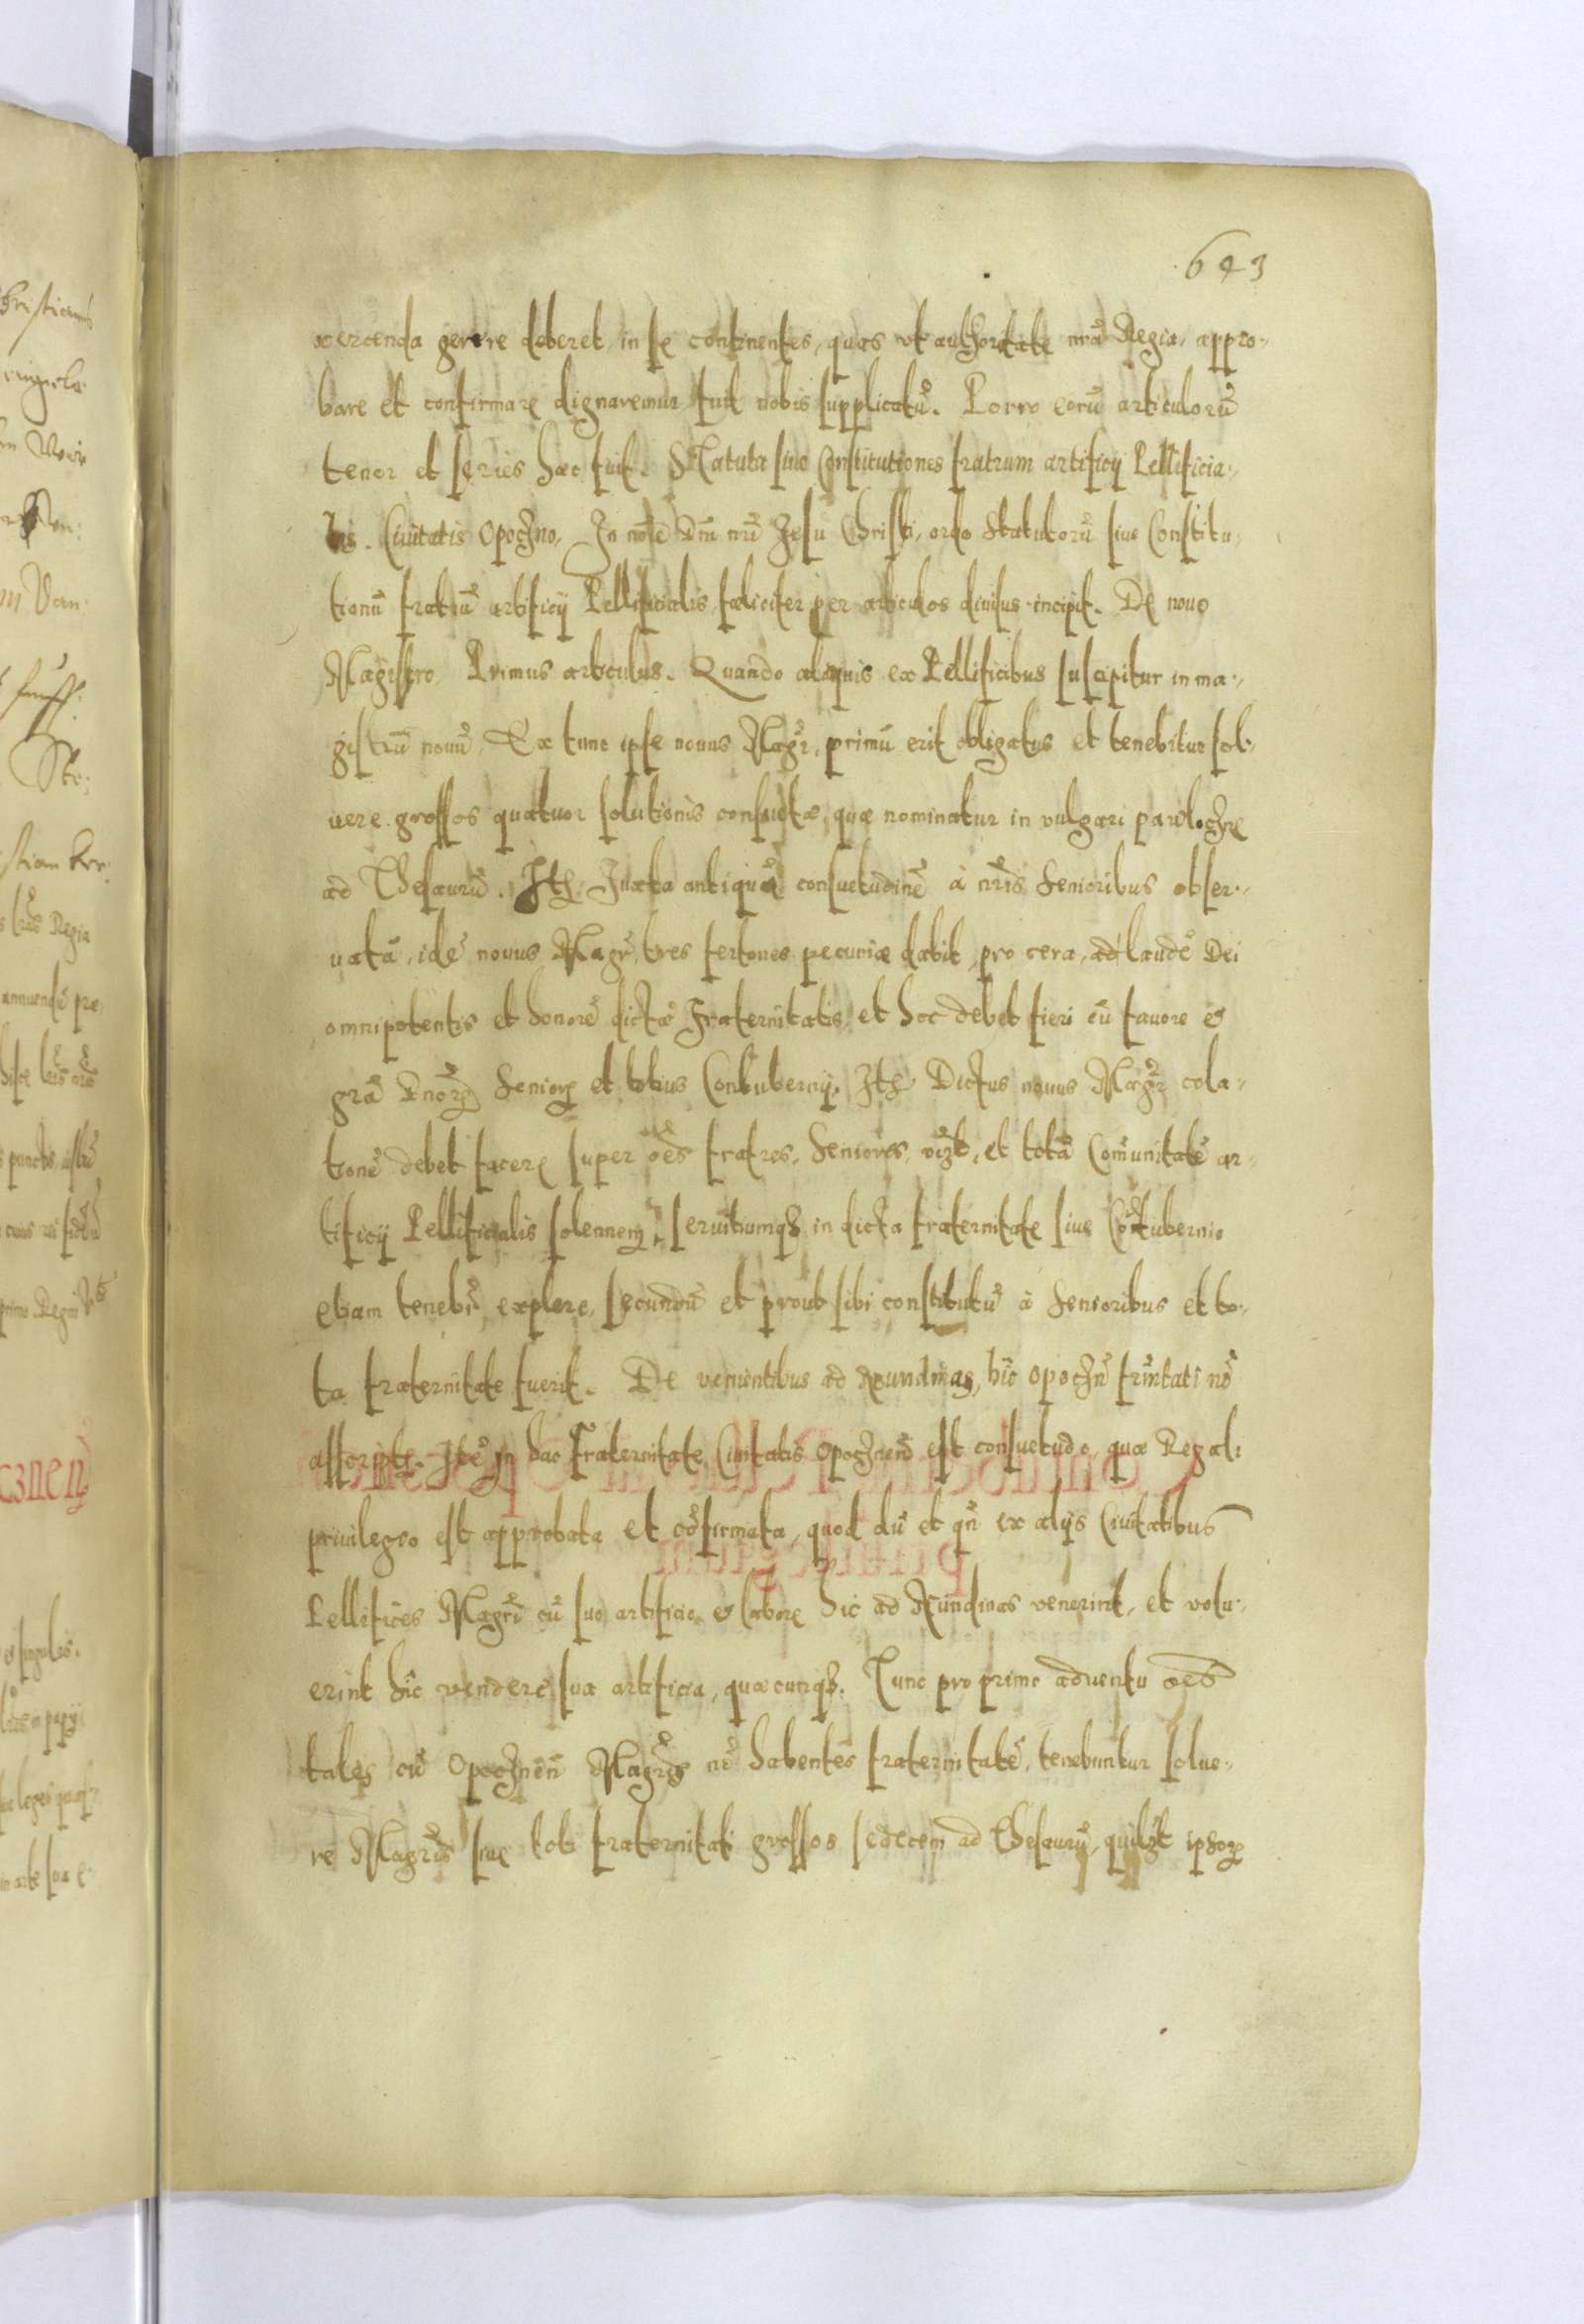 643
xercenda gerere deberet, in se continentes, quas vt authoritate nrã Regia, appro-
bare et confirmare dignaremur fuit nobis supplicatũ. Porro eorũ articulorũ
tenor et series hæc fuit. Statuta siue Constitutiones fratrum artificij Pellificia-
lis. Ciuitatis Opoczno, In noĩe Dñi nrĩ Jesu Christi, ordo statutorũ siue Constitu-
tionũ fratrũ artificij Pellificialis fæliciter per articulos diuisus incipit. De nouo
Magistro, Primus articulus. Quando aliquis ex Pellificibus suscipitur in ma-
gistrũ nouũ, Ex tunc ipse nouus Magr̃, primũ erit obligatus et tenebitur sol-
uere grossos quatuor solutionis consuetæ, quæ nominatur in vulgari
ad Thesaurũ. Itẽ Juxta antiquã consuetudinẽ à nrĩs Senioribus obser-
uatã, idẽ nouus Magr̃, tres fertones pecuniæ dabit, pro cera, ad laudẽ Dei
omnipotentis et honorẽ dictæ Fraternitatis, et hoc debet fieri cũ fauore &
grã Dnorũ Seniorũ et totius Contubernij. Itẽ Dictus nouus Magr̃ cola-
tionẽ debet facere super oẽs fratres, Seniores, vizt, et totã Comunitatẽ ar-
tificij Pellificialis solennem, seruitiumqȝ in dicta fraternitate siue Cõtubernio
etiam tenebr̃ explere, secundũ et prout sibi constitutũ à Senioribus et to-
ta fraternitate fuerit. De venientibus ad Nundinas, hĩc Opocznẽ frñitati nõ
asscripti. Itẽ in hac Fraternitate Ciuitatis Opocznen̄ est consuetudo, quæ Regali
priuilegio est approbata et cõfirmata, quod dũ et qñ ex alijs Ciuitatibus
Pellifices Magrĩ cũ suo artificio & labore hic ad Nundinas venerint, et volu-
erint hîc vendere sua artificia, quæcunqȝ. Tunc pro primo aduentu oẽs
tales cũ Opocznẽn Magrĩs nõ habentes fraternitatẽ, tenebuntur solue-
re Magrĩs siue toti fraternitati grossos sedecem ad Thesaurũ, quilibt ipsorũ